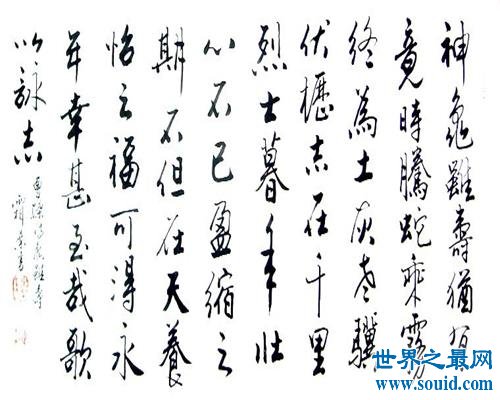 神龜雖壽猶有
竟時騰蛇乘霧
終為土灰老驥
伏櫪志在千里
烈士暮年壯
心不已盈縮之
期不但在天養
怡之福可得永
年幸甚至哉歌
以詠志
曹操詩龜雖壽
世界之最网
www.souid.com